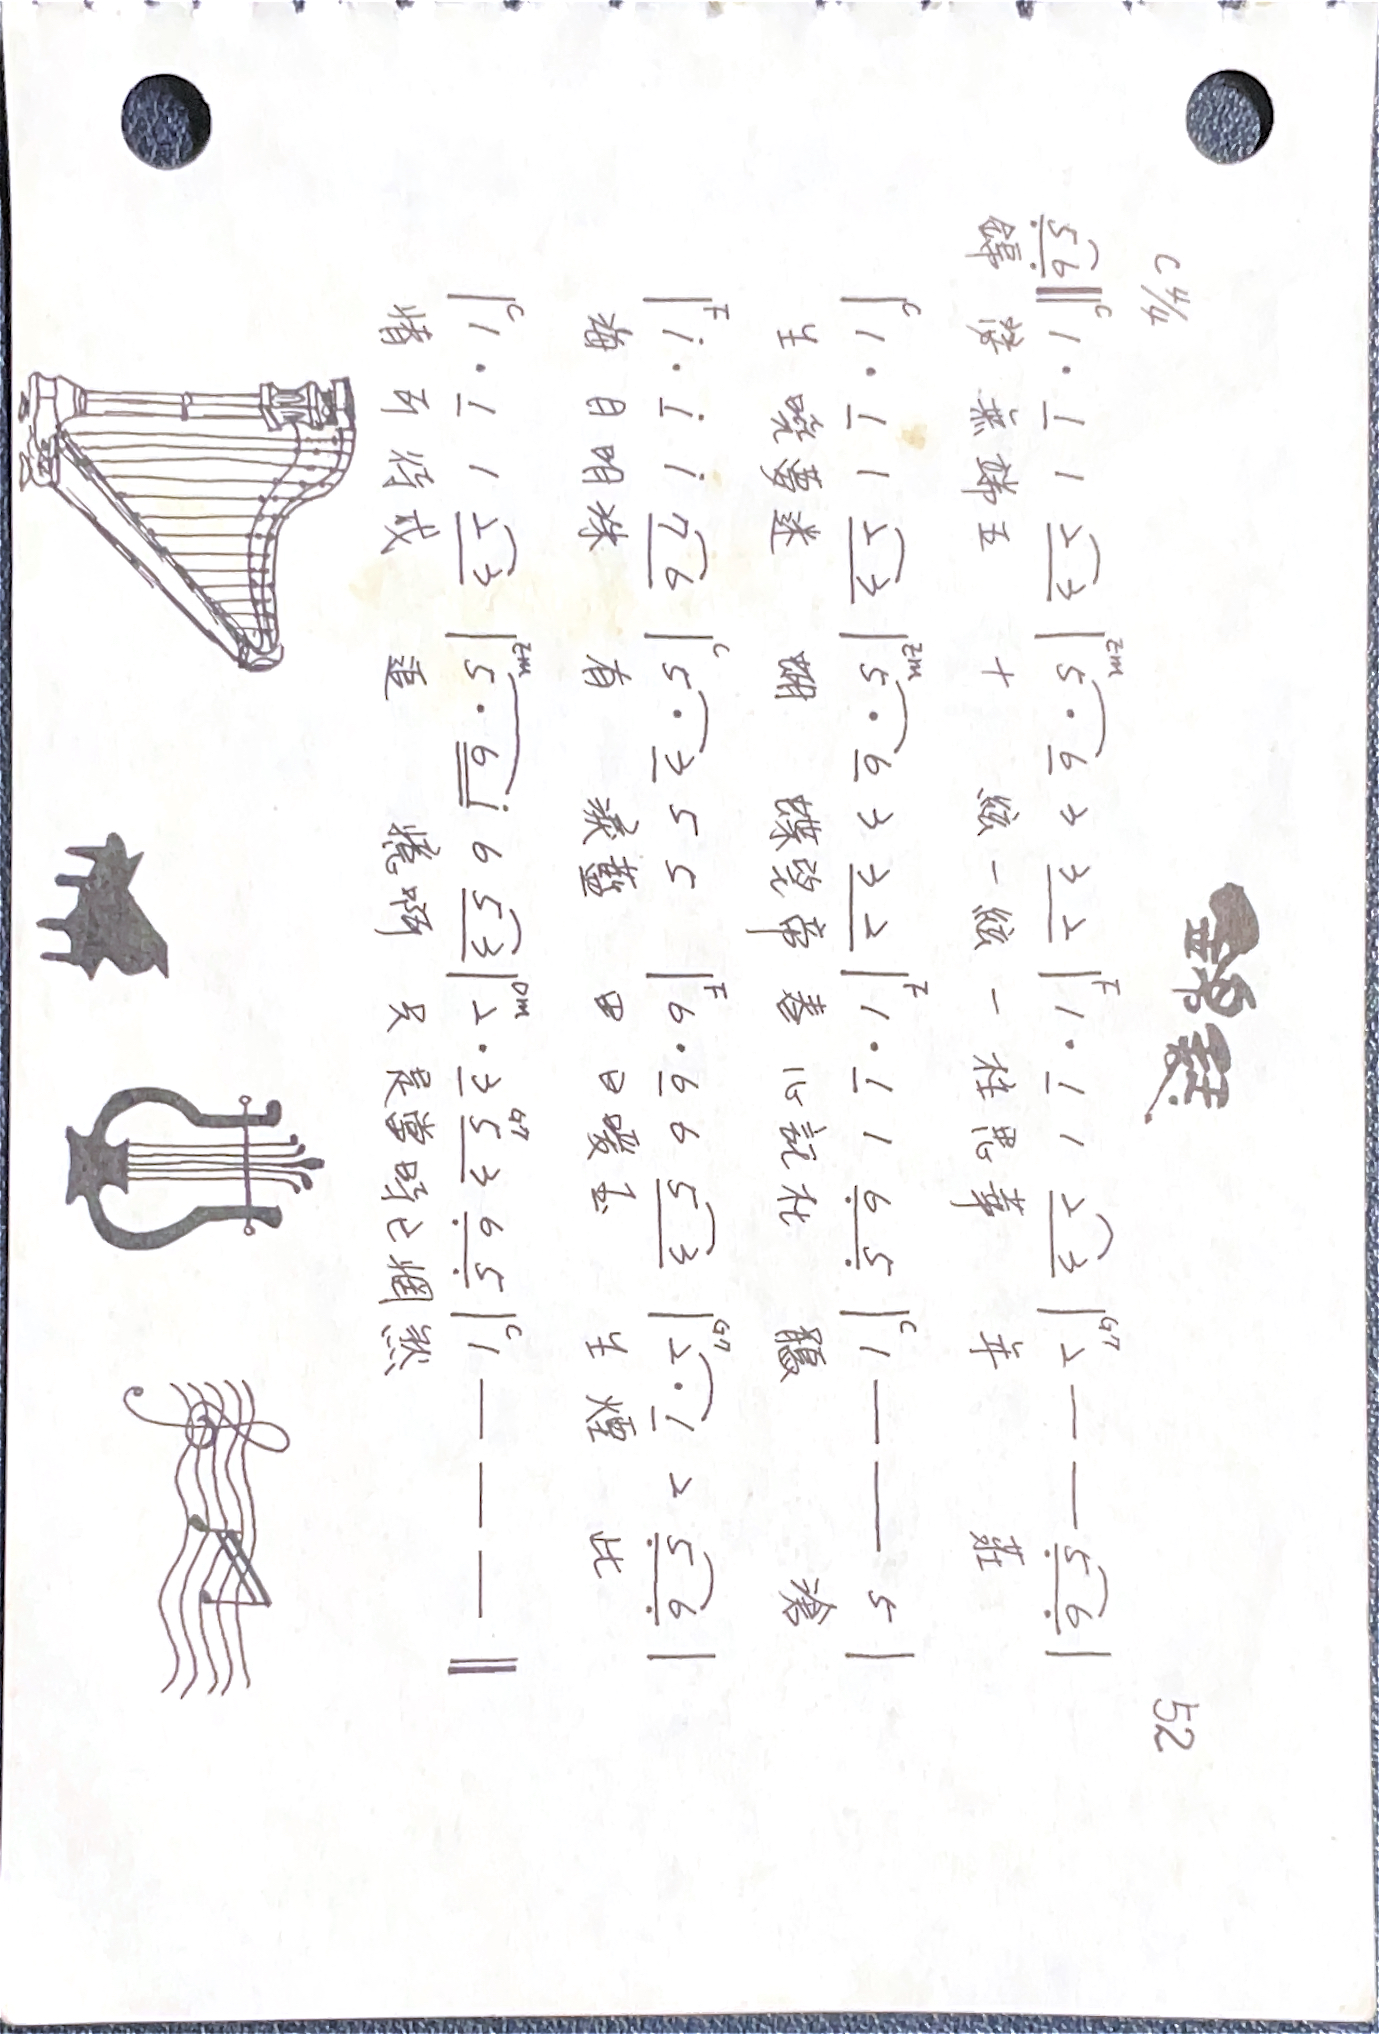 錦瑟
C 4/4
52
C Em F G7
5 6 ‖ 1 · 1 1 2 3 | 5 · 6 3 3 2 | 1 · 1 1 2 3 | 2 — — 5 6 |
錦 瑟 無 端 五 十 絃 一 絃 一 柱 思 華 年 莊
C Em F C
| 1 · 1 1 2 3 | 5 · 6 3 3 2 | 1 · 1 1 6 5 | 1 — — 5 |
生 曉 夢 迷 蝴 蝶 望 帝 春 心 託 杜 鵑 滄
F C F G7
| i · i i 7 6 | 5 · 3 5 5 | 6 · 6 6 5 3 | 2 · 1 2 5 6 |
海 月 明 珠 有 淚 藍 田 日 暖 玉 生 煙 此
C Em Dm G7 C
| 1 · 1 1 2 3 | 5 · 6 i 6 5 3 | 2 · 3 5 3 6 5 | 1 — — — ‖
情 可 待 成 追 憶 啊 只 是 當 時 已 惘 然